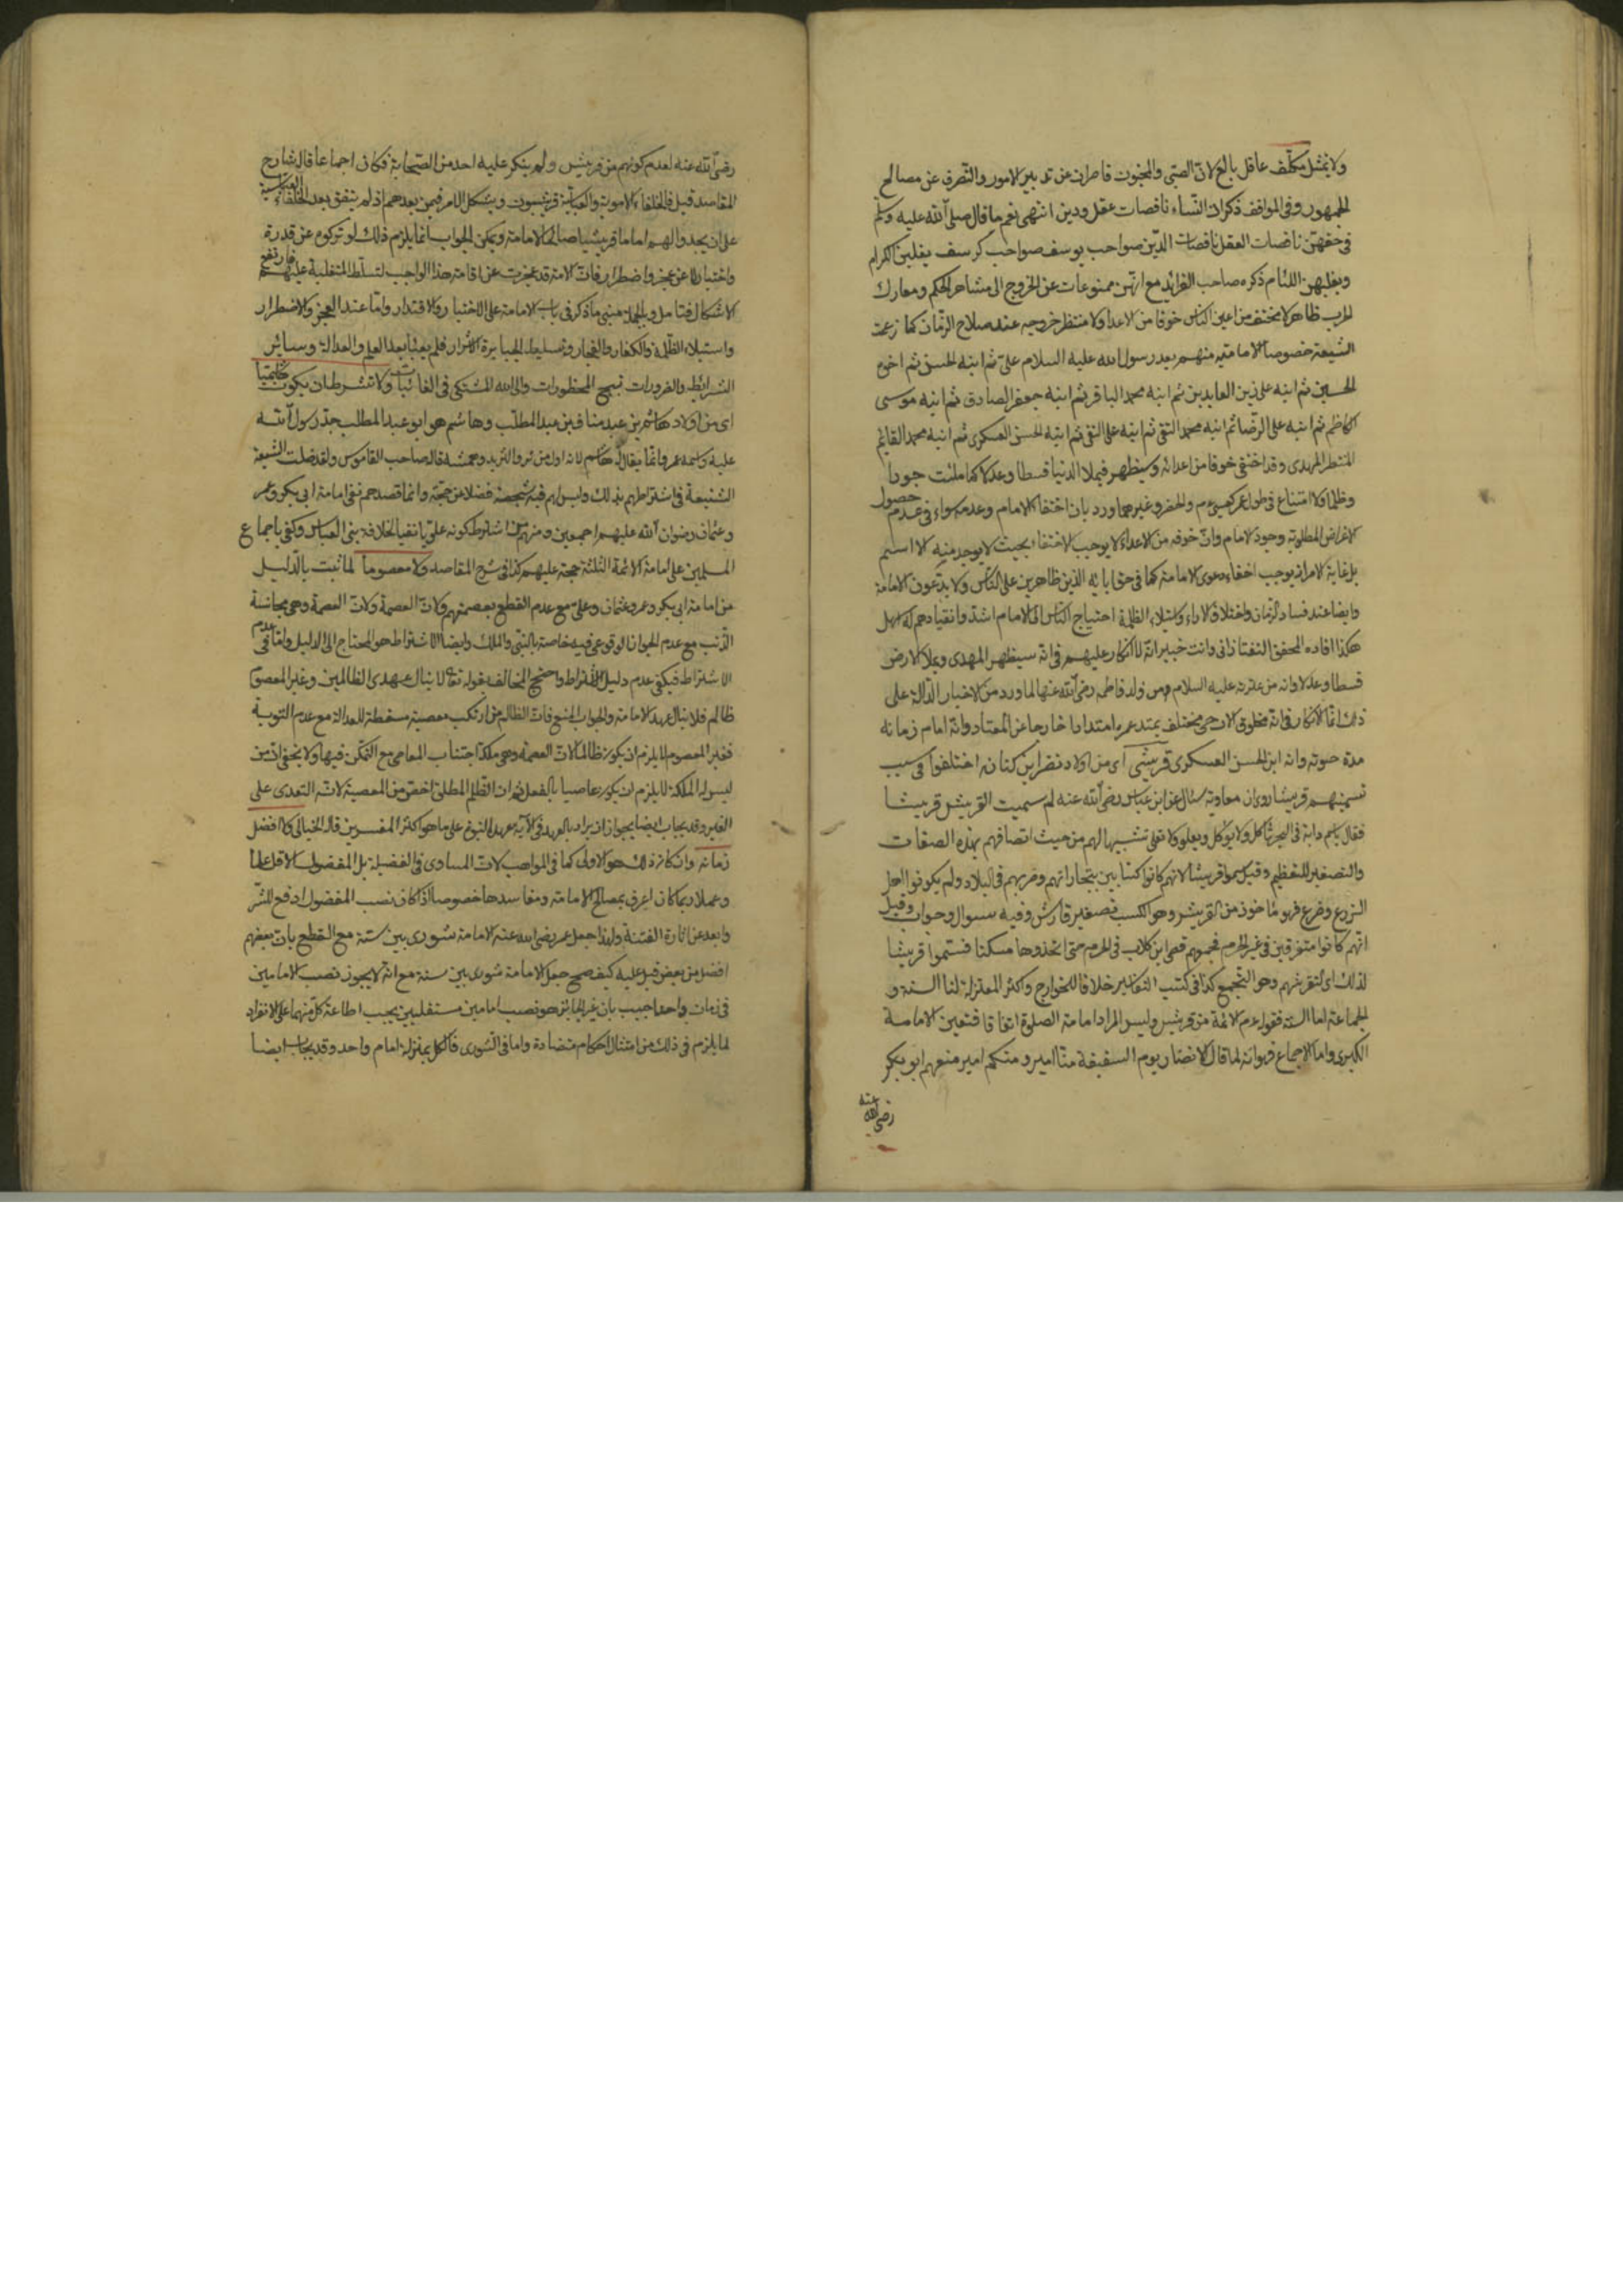 ولا خنثى مكلّف عاقل بالغ لان الصبى والمجنون قاصران عن تدبير الامور والتصرف عن مصالح
الجمهور وفى المواقف ذكرا لان النساء ناقصات عقل ودين انتهى نعم ما قال صلى الله عليه وسلم
فى حقهن ناقصات العقل ناقصات الدين صواحب يوسف صواحب كرسف يغلبن الكرام
ويغلبهن اللئام ذكره صاحب الفرائد مع انهن ممنوعات عن الخروج الى مشاهد الحكم ومعارك
الحرب ظاهرا لا مختف من اعين الناس خوفا من الاعداء ولا منتظر خروجه عند صلاح الزمان كما زعمت
الشيعة خصوصا الامامية منهم بعد رسول الله عليه السلام على ثم ابنه الحسن ثم اخوه
الحسين ثم ابنه على زين العابدين ثم ابنه محمد الباقر ثم ابنه جعفر الصادق ثم ابنه موسى
الكاظم ثم ابنه على الرضا ثم ابنه محمد التقى ثم ابنه على النقى ثم ابنه الحسن العسكرى ثم ابنه محمد القائم
المنتظر المهدى وقد اختفى خوفا من اعدائه وسيظهر فيملا الدنيا قسطا وعدلا كما ملئت جورا
وظلما ولا امتناع فى طول عمره كعيسى عم والخضر وغيرهما ورد بان اختفاء الامام وعدمه سواء فى عدم حصول
الاغراض المطلوبة وجود الامام وان خوفه من الاعداء لا يوجب الاختفاء بحيث لا يوجد منه الا اسم
بل غاية الامر انه يوجب اخفاء دعوى الامامة كما فى حق ابائه الذين ظاهرين على الناس ولا يدعون الامامة
وايضا عند فساد الزمان واختلاف الاراء واستيلاء الظلمة احتياج الناس الى الامام اشد وانقيادهم له اسهل
هكذا افاده المحقق التفتازانى وانت خبير انه لا انكار عليهم فى انه سيظهر المهدى ويملا الارض
قسطا وعدلا وانه من عترته عليه السلام ومن ولد فاطمه رضى الله عنها لما ورد من الاخبار الدالة على
ذلك انما الانكار فى انه مخلوق الان حى مختلف يمتد عمره امتدادا خارجا عن المعتاد وانه امام زمانه
مدة حيوته وانه ابن الحسن العسكرى قريشى اى من اولاد نضر ابن كنانه اختلفوا فى سبب
تسميتهم قريشا روى ان معاوية سئال عن ابن عباس رضى الله عنه لم سميت القريش قريشا
فقال باسم دابة فى البحر تأكل ولا يوكل ويعلو ولا تعلى تشبيها لهم من حيث اتصافهم بهذه الصفات
والتصغير للتعظيم وقيل سموا قريشا لانهم كانوا كسابين بتجاراتهم وضربهم فى البلاد ولم يكونوا اهل
الزرع وضرع فهو مأخوذ من القريش وهو الكسب فصغير قارش وفيه سوال وجواب وقيل
انهم كانوا متفرقين فى غير الحرم فجمعهم قصى ابن كلاب فى الحرم حتى اتخذوها مسكنا فسموا قريشا
لذلك اى لتقرشهم وهو التجمع كذا فى كتب التفاسير خلافا للخوارج واكثر المعتزلة لنا السنة و
الجماعة اما السنة فقوله عم الائمة من قريش وليس المراد امامة الصلوة اتفاقا فتعين الامامة
الكبرى واما الاجماع فهو انه لما قال الانصار يوم السقيفة منا امير ومنكم امير منعهم ابو بكر
رضى الله عنه
رضى الله عنه لعدم كونهم من قريش ولم ينكر عليه احد من الصحابة فكان اجماعا قال شارح
المقاصد قيل فالخلفاء الاموية والعباسية قريشيون ويشكل الامر فيمن بعدهم اذ لم يتفق بعد الخلفاء العباسية
على ان يجدوا لهم اماما قريشيا صالحا للامامة ويمكن الجواب انما يلزم ذلك لو تركوه عن قدرة
واختيار لا عن عجز واضطرار فان الامة قد عجزت عن اقامة هذا الواجب لتسلط المتغلبة عليهم فارتفع
الاشكال فتامل وبالجملة مبنى ما ذكر فى باب الامامة على الاختيار والاقتدار واما عند العجز والاضطرار
واستيلاء الظلمة والكفار والفجار وتسليط الجبابرة الاشرار فلم يعبأ بعد العلم والعدالة وسائر
الشرائط والضرورات تبيح المحظورات والى الله المشتكى فى الغائبات ولا تشترط ان يكون هاشميا
اى من اولاد هاشم بن عبد مناف بن عبد المطلب وهاشم هو ابو عبد المطلب جد رسول الله
عليه واسمه عمرو انما يقال له هاشم لانه اول من ثرد الثريد وهشمه قاله صاحب القاموس ولقد ضلت الشيعة
الشنيعة فى اشتراطهم بذلك وليس لهم فيه شبهة فضلا عن حجة وانما قصدهم نفى امامة ابى بكر وعمر
وعثمان رضوان الله عليهم اجمعين ومنهم من اشترط كونه علويا نفيا لخلافة بنى العباس وكفى باجماع
المسلمين على امامة الائمة الثلثة حجة عليهم كذا فى شرح المقاصد ولا معصوما لما ثبت بالدليل
من امامة ابى بكر وعمر وعثمان وعلى مع عدم القطع بعصمتهم ولان العصمة ولان العصمة وهى مجانسة
الذنب مع عدم الجواز الوقوعى فيه خاصة بالنبى والملك وايضا الاشتراط هو المحتاج الى الدليل واما فى عدم
الاشتراط فيكفى عدم دليل الاشتراط واحتج المخالف بقوله تعالى لا ينال عهدى الظالمين وغير المعصوم
ظالم فلا ينال عهد الامامة والجواب المنع فان الظالم من ارتكب معصية مسقطة للعدالة مع عدم التوبة
فغير المعصوم لا يلزم ان يكون ظالما لان العصمة وهى ملكة اجتناب المعاصى مع التمكن فيها ولا يخفى ان من
ليس له الملكة لا يلزم ان يكون عاصيا بالفعل ثم ان الظلم المطلق اخص من المعصية لانه التعدى على
الغير وقد يجاب ايضا يجوز ان يراد بالعهد فى الآية عهد النبوة على ما هو اكثر المفسرين قال الخيالى ولا افضل
زمانه وان كان ذلك هو الاولى كما فى المواهب لان المساوى فى الفضيلة بل المفضول الاقل علما
وعملا ربما كان اعرف بمصالح الامامة ومفاسدها خصوصا اذا كان نصب المفضول ادفع للشر
وابعد عن اثارة الفتنة ولهذا جعل عمر رضى الله عنه الامامة شورى بين ستة مع القطع بان بعضهم
افضل من بعض قيل عليه كيف صح جعل الامامة شورى بين ستة مع انه لا يجوز نصب الامامين
فى زمان واحد اجيب بان غير الجائز هو نصب امامين مستقلين يجب اطاعة كل منهما على الانفراد
لما يلزم فى ذلك من امتثال احكام متضادة واما فى الشورى فالكل بمنزلة امام واحد وقد يجاب ايضا